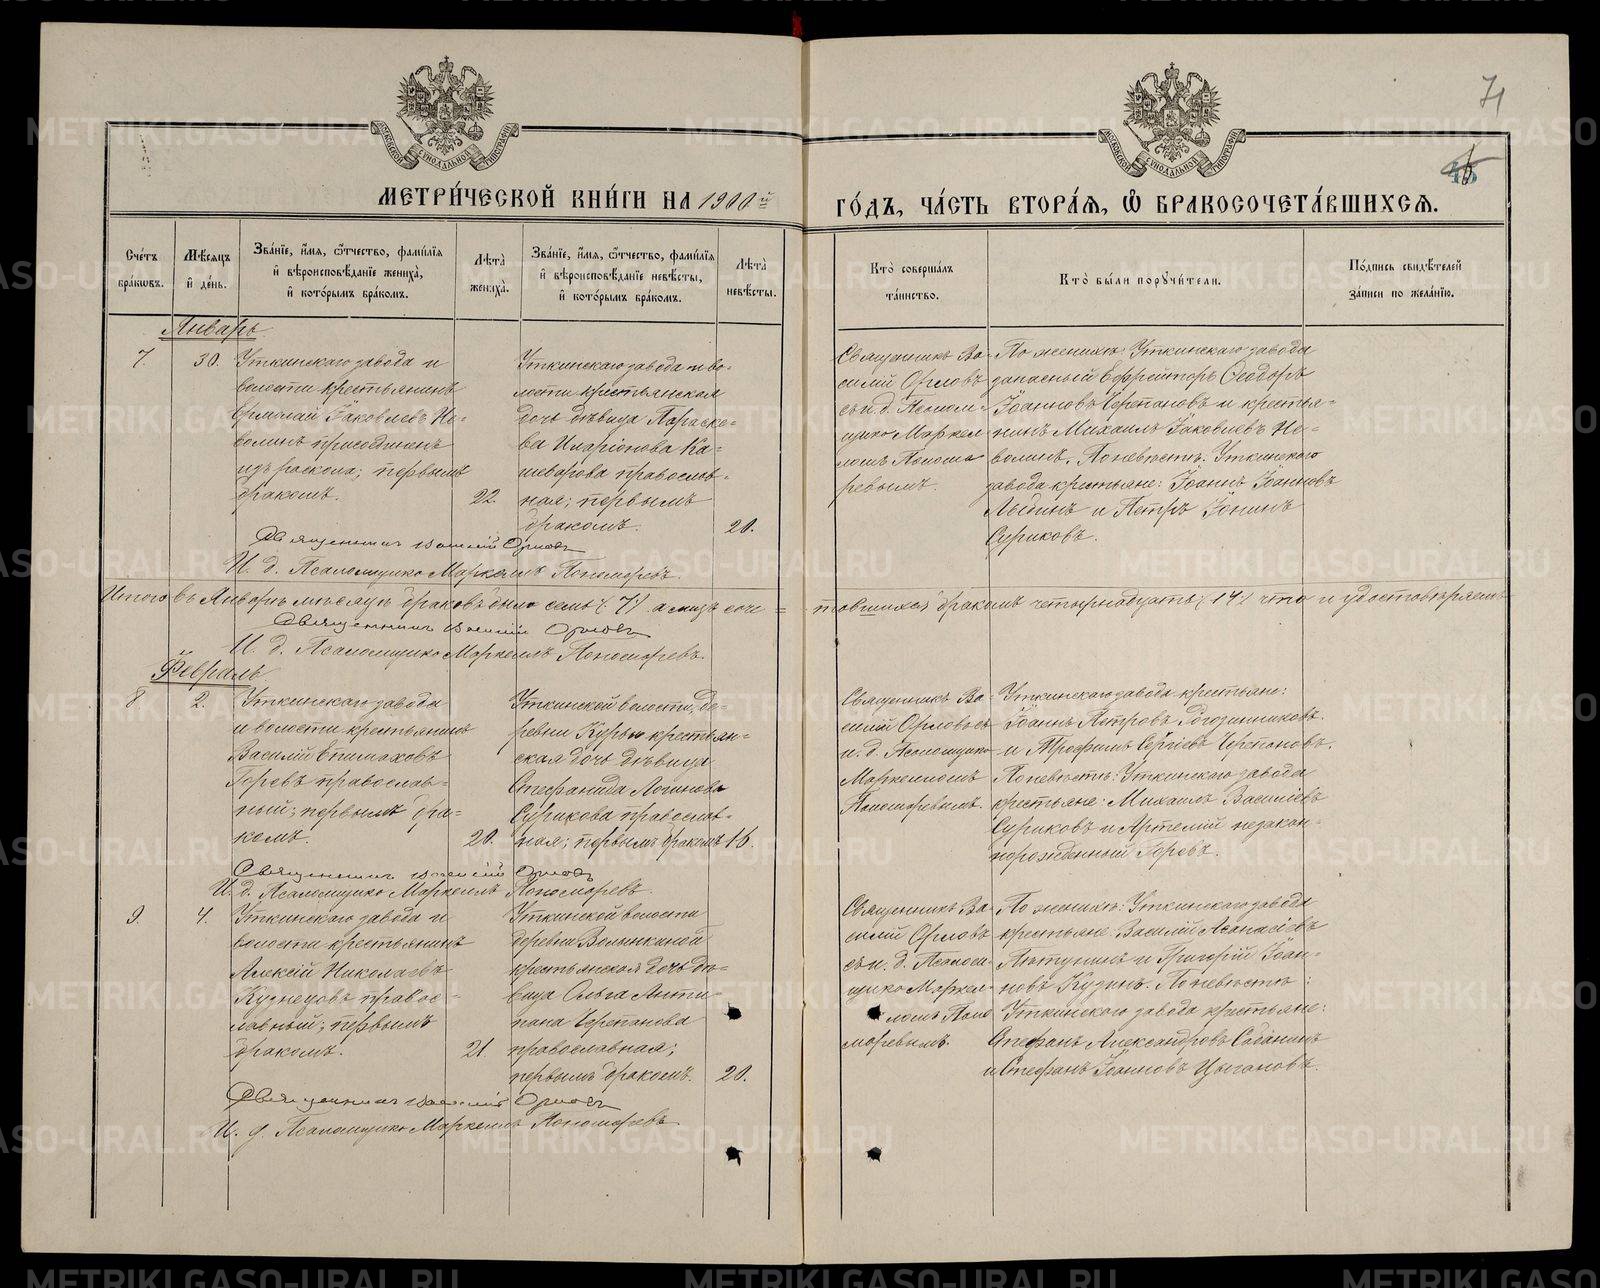 МОСКОВСКОЙ СѴНОДАЛЬНОЙ ТИПОГРАФІИ
МОСКОВСКОЙ СѴНОДАЛЬНОЙ ТИПОГРАФІИ
71
МЕТРИ́ЧЕСКОЙ КНИ́ГИ НА 1900й
ГО́ДЪ, ЧА́СТЬ ВТОРА́Ѧ, Ѽ БРАКОСОЧЕТА́ВШИХСѦ.
Сче́тъ бра́кѡвъ.
Мѣ́сѧцъ и҆ де́нь.
Зва́нїе, и҆́мѧ, ѻ҆́тчество, фамї́лїѧ и҆ вѣроисповѣ́данїе жениха̀, и҆ кото́рымъ бра́комъ.
Лѣта̀ жениха̀.
Зва́нїе, и҆́мѧ, ѻ҆́тчество, фамї́лїѧ и҆ вѣроисповѣ́данїе невѣ́сты, и҆ кото́рымъ бра́комъ.
Лѣта̀ невѣ́сты.
Кто̀ соверша́лъ та́инство.
Кто̀ бы́ли порꙋчи́тели.
По́дпись свидѣ́телей за́писи по жела́нїю.
Январь
7.
30.
Уткинскаго завода и
волости крестьянинъ
Ермолай Іаковлевъ Не-
волинъ присоединенъ
изъ раскола; первымъ
бракомъ.
22.
Уткинскаго завода и во-
лости крестьянская
дочь дѣвица Параске-
ва Иларіонова Ка-
шеварова православ-
ная; первымъ
бракомъ.
20.
Священникъ Ва-
силій Орловъ
съ и. д. Псалом-
щика Маркел-
ломъ Понома-
ревымъ.
По женихѣ: Уткинскаго завода
запасный Ефрейторъ Ѳеодоръ
Іоанновъ Черепановъ и крестья-
нинъ Михаилъ Іаковлевъ Не-
волинъ. По невѣстѣ: Уткинского
завода крестьяне: Іоаннъ Іоанновъ
Лядинъ и Петръ Іонинъ
Суриковъ.
Священникъ Василій Орловъ
И. д. Псаломщика Маркеллъ Пономаревъ.
Итого въ Январѣ мѣсяцѣ браковъ было семь (7) а лицъ соче-
тавшихся бракомъ четырнадцать (14) что и удостовѣряемъ
Священникъ Василій Орловъ
И. д. Псаломщика Маркеллъ Пономаревъ.
Февраль
8
2.
Уткинскаго завода
и волости крестьянинъ
Василій Епимаховъ
Горевъ православ-
ный; первымъ бра-
комъ.
20.
Уткинской волости, де-
ревни Курьи крестьян-
ская дочь дѣвица
Стефанида Логинова
Сурикова православ-
ная; первымъ бракомъ
16.
Священникъ Ва-
силій Орловъ съ
и. д. Псаломщика
Маркелломъ
Пономаревымъ.
Уткинскаго завода крестьяне:
Іоаннъ Петровъ Рогозинниковъ.
и Трофимъ Сергіевъ Черепановъ.
По невѣстѣ: Уткинскаго завода
крестьяне: Михаилъ Василіевъ
Суриковъ и Артемій незакон-
норожденный Горевъ.
Священникъ Василій Орловъ
И. д. Псаломщика Маркеллъ Пономаревъ.
9.
4.
Уткинскаго завода и
волости крестьянинъ
Алексій Николаевъ
Кузнецовъ правос-
лавный; первымъ
бракомъ.
21.
Уткинской волости
деревни Волынкиной
крестьянская дочь дѣ-
вица Ольга Анти-
пана Черепанова
православная;
первымъ бракомъ.
20.
Священникъ Ва-
силій Орловъ
съ и. д. Псалом-
щика Маркел-
ломъ Поно-
маревымъ.
По женихѣ: Уткинскаго завода
крестьяне: Василій Аѳанасіевъ
Пятунинъ и Григорій Іоан-
новъ Кузинъ. По невѣстѣ:
Уткинского завода крестьяне:
Стефанъ Александровъ Сабанинъ
и Стефанъ Іоанновъ Цыгановъ.
Священникъ Василій Орловъ
И. д. Псаломщика Маркеллъ Пономаревъ
METRIKI.GASO-URAL.RU